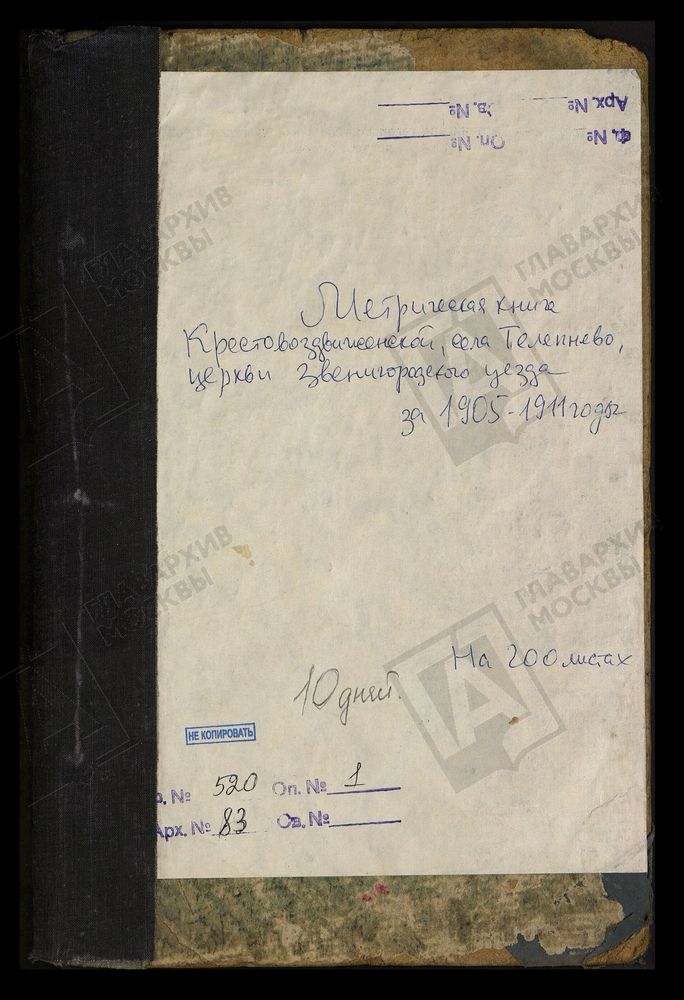 Арх. № Св. №
Ф. № Оп. №
Метрическая книга
Крестовоздвиженской, села Телепнево,
церкви Звенигородского уезда
за 1905-1911 годы
На 200 листах
10 дней.
НЕ КОПИРОВАТЬ
Ф. № 520 Оп. № 1
Арх. № 83 Св. №
ГЛАВАРХИВ
МОСКВЫ
ГЛАВАРХИВ
МОСКВЫ
ГЛАВАРХИВ
МОСКВЫ
ГЛАВАРХИВ
МОСКВЫ